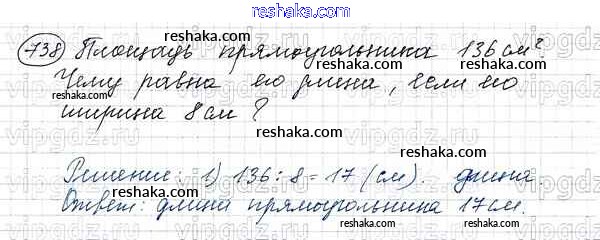 reshaka.com
738 Площадь прямоугольника 136 см²
reshaka.com
Чему равна его длина, если его
reshaka.com
ширина 8 см?
reshaka.com
reshaka.com
Решение: 1) 136 : 8 = 17 (см). длина.
reshaka.com
Ответ: длина прямоугольника 17 см.
reshaka.com